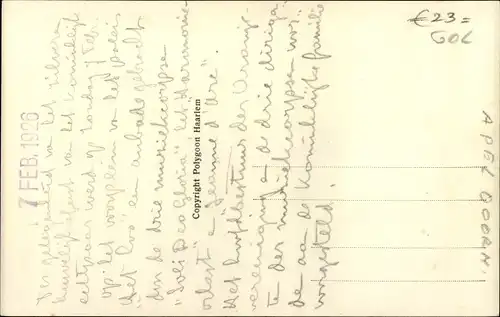 Ter gelegenheid van het zilveren
huwelijksfeest van het Koninklijk
echtpaar werd op Zondag 7 Feb.
op het voorplein van het Paleis
"het Loo" een aubade gebracht
door de drie muziekcorpsen
"Soli Deo Gloria" "het Harmonie-
orkest" "Jeanne d'Arc".
Het hoofdbestuur der Oranje-
vereeniging de drie dirigen-
ten der muziekcorpsen wer-
den aan de Koninklijke familie
voorgesteld.
7 FEB. 1926
Copyright Polygoon Haarlem
€ 23=
GOL
APELDOORN.